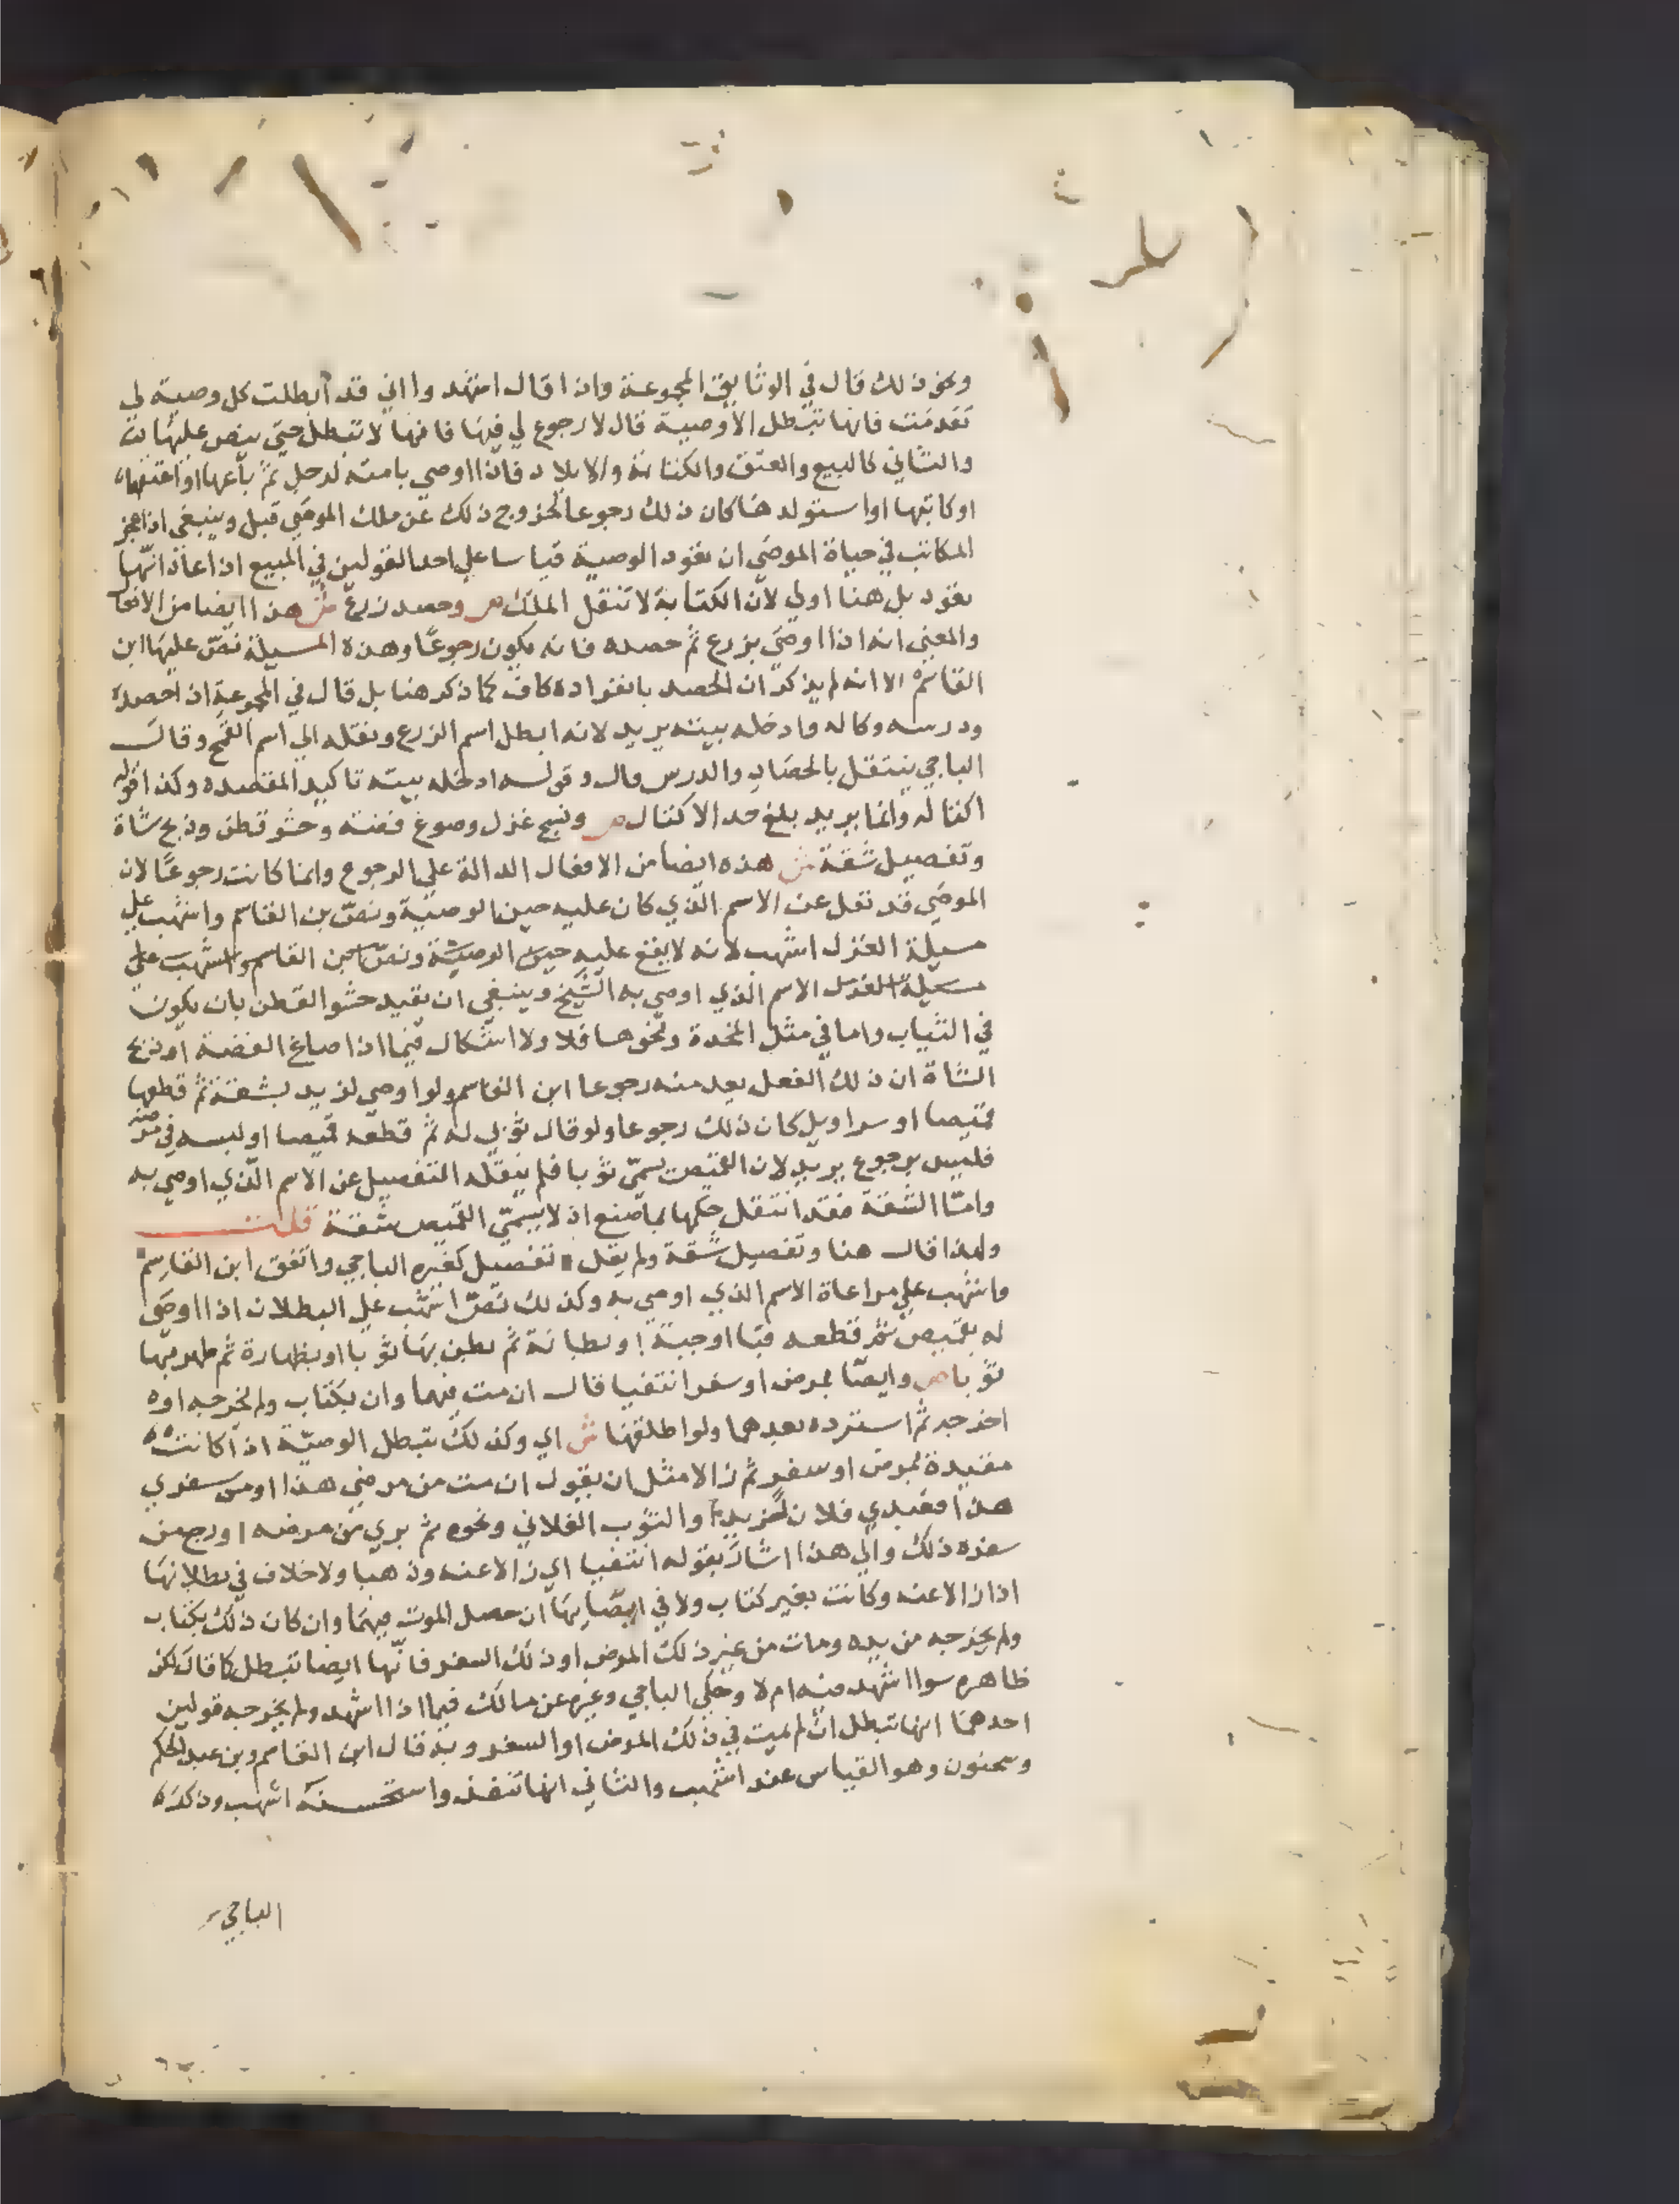 ونحو ذلك قال في الوثايق المجموعة واذا قال اشهدوا اني قد ابطلت كل وصية لي
تقدمت فانها تبطل الا وصية قال لا رجوع لي فيها فانها لا تبطل حتى ينص عليها
والثاني كالبيع والعتق والكتابة والايلاد فاذا اوصى بامته لرجل ثم باعها او اعتقها
او كاتبها او استولدها كان ذلك رجوعا لخروج ذلك عن ملك الموصي قيل وينبغي اذا عجز
المكاتب في حياة الموصي ان تعود الوصية قياسا على احد القولين في المبيع اذا عاد انها
تعود بل هنا اولى لان الكتابة لا تنقل الملك ص وحصد زرع ش هذا ايضا من الافعال
والمعنى انه اذا اوصى بزرع ثم حصده فانه يكون رجوعا وهذه المسيلة نص عليها ابن
القاسم الا انه لم يذكر ان الحصد بانفراده كاف كما ذكر هنا بل قال في المجموعة اذا حصده
ودرسه وكاله وادخله بيته يريد لانه ابطل اسم الزرع ونقله الى اسم القمح وقال
الباجي ينتقل بالحصاد والدرس قال وقوله ادخله بيته تاكيد المقصده وكذا قوله
اكتاله وانما يريد بلغ حد الاكتال ص ونسج غزل وصوغ فضة وحشو قطن وذبح شاة
وتفصيل شقة ش هذه ايضا من الافعال الدالة على الرجوع وانما كانت رجوعا لان
الموصي قد نقل عن الاسم الذي كان عليه حين الوصية ونص بن القاسم واشهب على
مسيلة الغزل اشهب لانه لا يقع عليه حين الوصية ونص بن القاسم واشهب على
مسيلة الغزل الاسم الذي اوصى به الشيخ وينبغي ان يقيد حشو القطن بان يكون
في الثياب واما في مثل المخدة ونحوها فلا ولا اشكال فيما اذا صاغ الفضة او ذبح
الشاة ان ذلك الفعل يعد منه رجوعا ابن القاسم ولو اوصى لزيد بشقة ثم قطعها
قميصا او سراويل كان ذلك رجوعا ولو قال ثوبي له ثم قطعه قميصا او لبسه في مرضه
فليس برجوع يريد لان القميص يسمى ثوبا فلم ينقله التفصيل عن الاسم الذي اوصى به
واما الشقة فقد انتقل حكمها بما صنع اذ لا يسمى القميص شقة قلت
ولهذا قال هنا وتفصيل شقة ولم يقل تفصيل كغيره الباجي واتفق ابن القاسم
واشهب على مراعاة الاسم الذي اوصى به وكذلك نص اشهب على البطلان اذا اوصى
له بقميص ثم قطعه قبا او جبة او بطانة ثم بطن بها ثوبا او بظهارة ثم ظهر بها
ثوبا ص وايصا بمرض او سفر انتفيا قال ان مت فيهما وان بكتاب ولم يخرجه او
اخرجه ثم استرده بعدهما ولو اطلقها ش اي وكذلك تبطل الوصية اذا كانت
مقيدة بمرض او سفر ثم زالا مثل ان يقول ان مت من مرضي هذا او من سفري
هذا فعبدي فلان لزيد او الثوب الفلاني ونحوه ثم بري من مرضه او رجع من
سفره ذلك والى هذا اشار بقوله انتفيا اي زالا عنه وذهبا ولا خلاف في بطلانها
اذا زالا عنه وكانت بغير كتاب ولا في ايصايها ان حصل الموت فيهما وان كان ذلك بكتاب
ولم يخرجه من يده ومات من غير ذلك المرض او ذلك السفر فانها ايضا تبطل كما قال لكن
ظاهره سوا اشهد فيه ام لا وحكى الباجي وغيره عن مالك فيما اذا اشهد ولم يخرجه قولين
احدهما انها تبطل ان لم يمت في ذلك المرض او السفر وبه قال ابن القاسم وبن عبد الحكم
وسحنون وهو القياس عند اشهب والثاني انها تنفذ واستحسنه اشهب وذكره
الباجي